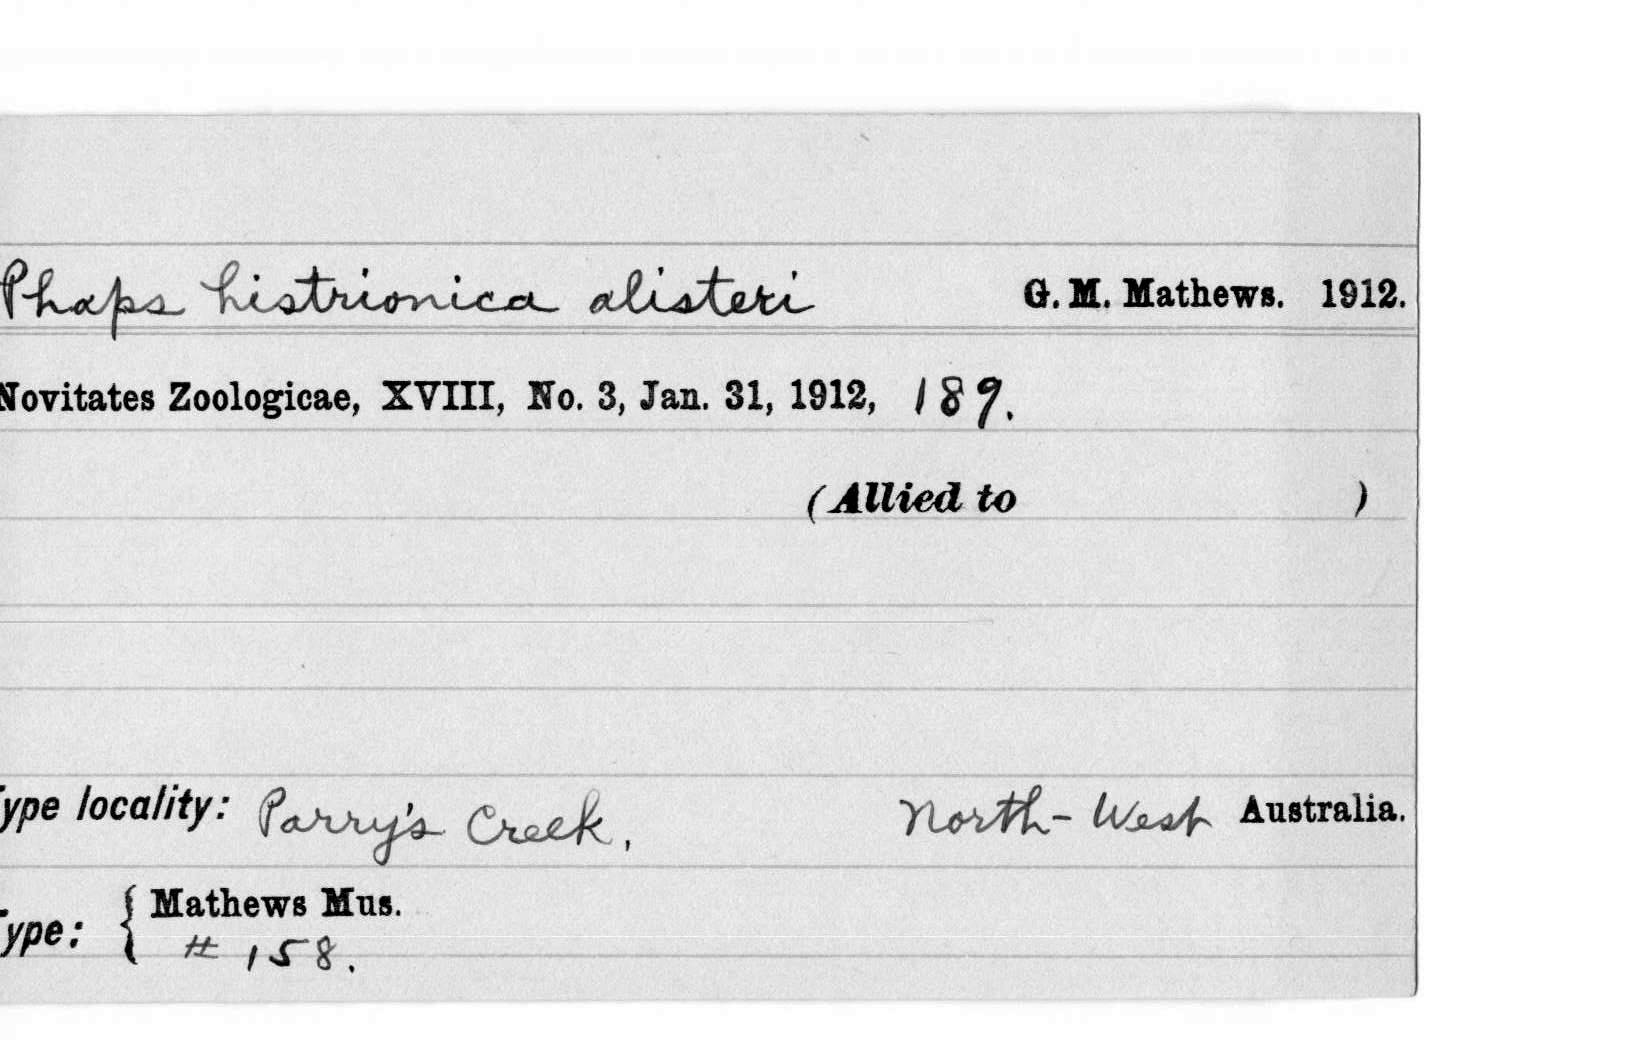 Phaps histrionica alisteri G. M. Mathews. 1912.
Novitates Zoologicae, XVIII, No. 3, Jan. 31, 1912, 189.
(Allied to )
Type locality: Parry's Creek, North-West Australia.
Type: { Mathews Mus.
# 158.